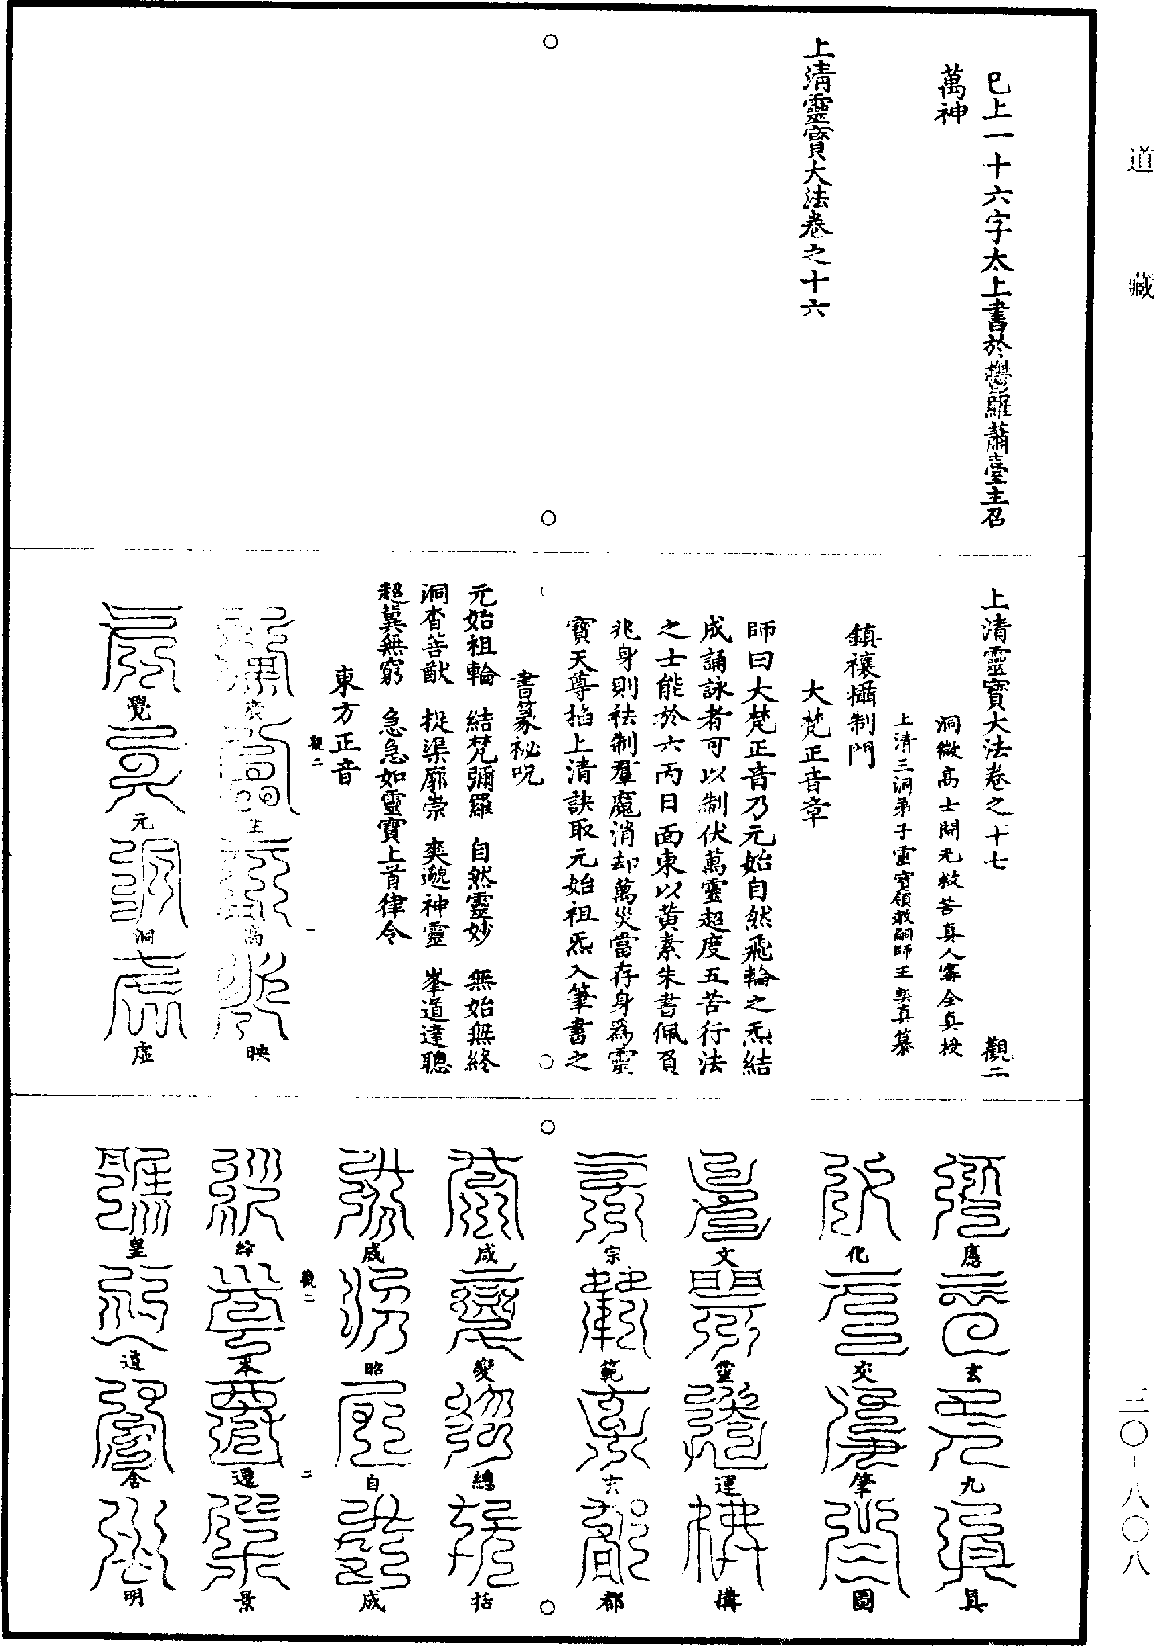 道藏
已上一十六字太上書於懋羅蕭臺主召
萬神
上清靈寶大法卷之十六
上清靈寶大法卷之十七
觀二
洞微高士開光救苦真人甯全真授
上清三洞弟子靈寶領教嗣師王契真纂
鎮禳攝制門
大梵正音章
師曰大梵正音乃元始自然飛輪之炁結
成誦詠者可以制伏萬靈超度五苦行法
之士能於六丙日面東以黃素朱書佩頁
兆身則祛制羣魔消却萬災當存身爲靈
寶天尊掐上清訣取元始祖炁入筆書之
書篆秘呪
元始祖輪 結梵彌羅 自然靈妙 無始無終
洞杳菩猷 捉渠廓崇 奕邈神靈 峯道達聰
超冀無窮 急急如靈寶上首律令
東方正音
觀二
一
主 高 映
覺 元 洞 虛
應 玄 九 真
化 交 肇 圖
文 靈 運 搆
宗 範 玄 都
咸 變 總 括
感 昭 自 成
觀二
二
綷 來 還 景
皇 道 含 明
三〇-八〇八